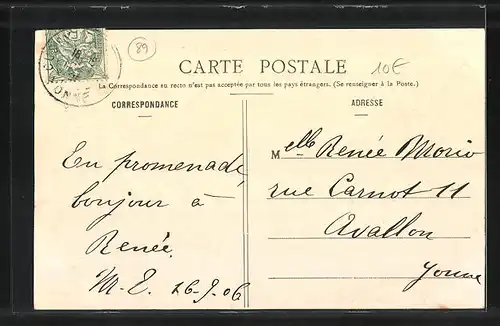 89
CARTE POSTALE
10€
La Correspondance au recto n'est pas acceptée par tous les pays étrangers. (Se renseigner à la Poste.)
CORRESPONDANCE
En promenade,
bonjour à
Renée.
M-E. 26-9-06
ADRESSE
Melle Renée Morio
rue Carnot 11
Avallon
Yonne